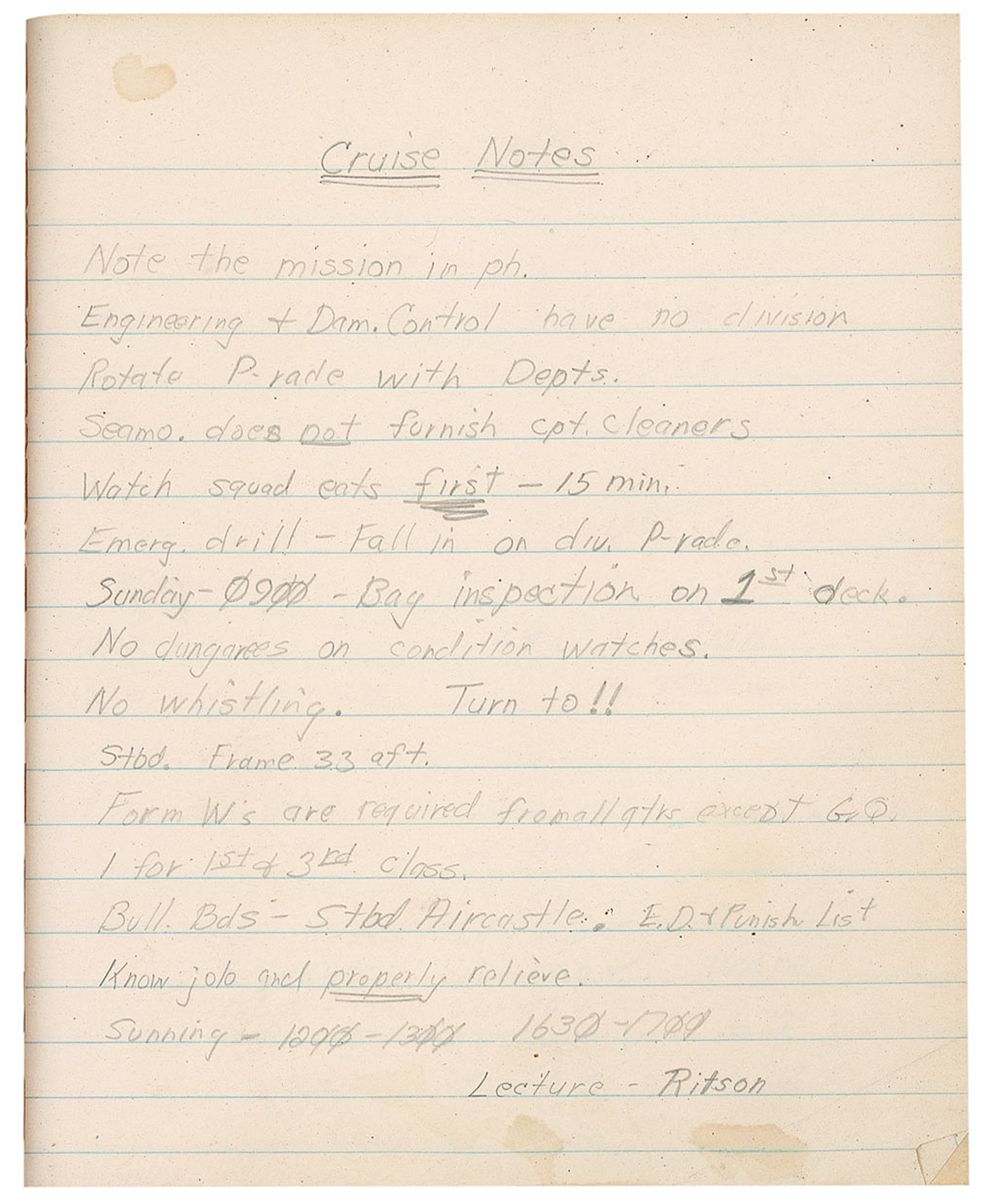 Cruise Notes
Note the mission in ph.
Engineering + Dam. Control have no division
Rotate P-rade with Depts.
Seamo. does not furnish cpt. cleaners
Watch squad eats first – 15 min.
Emerg. drill – Fall in on div. P-rade.
Sunday – 0900 – Bag inspection on 1st deck.
No dungarees on condition watches.
No whistling. Turn to!!
Stbd. Frame 33 aft.
Form W's are required from all qtrs except G.Q.
1 for 1st & 3rd class.
Bull. Bds – Stbd. Aircastle. E.D. + Punish List
Know job and properly relieve.
Sunning – 1200 – 1300 1630 – 1700
Lecture – Ritson